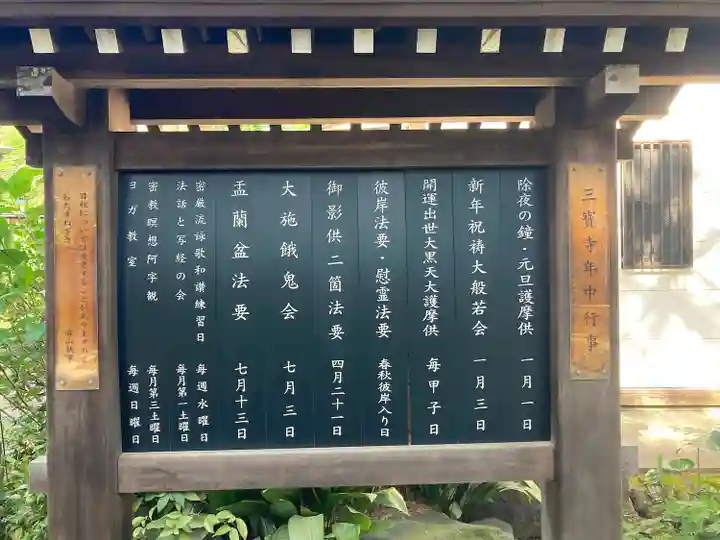 三寳寺年中行事
除夜の鐘・元旦護摩供 一月一日
新年祝祷大般若会 一月三日
開運出世大黒天大護摩供 毎甲子日
彼岸法要・慰霊法要 春秋彼岸入り日
御影供二箇法要 四月二十一日
大施餓鬼会 七月三日
盂蘭盆法要 七月十三日
密厳流詠歌和讃練習日 毎週水曜日
法話と写経の会 毎月第一土曜日
密教瞑想阿字観 毎月第三土曜日
ヨガ教室 毎週日曜日